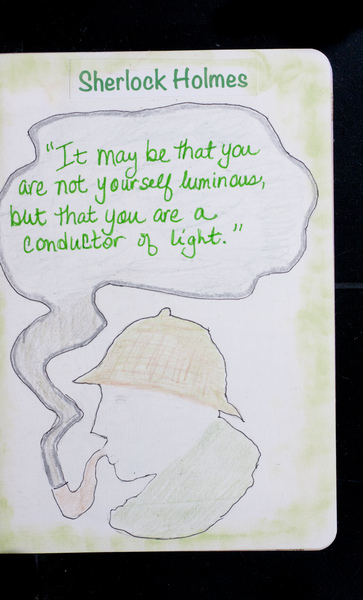 Sherlock Holmes
"It may be that you
are not yourself luminous,
but that you are a
conductor of light."